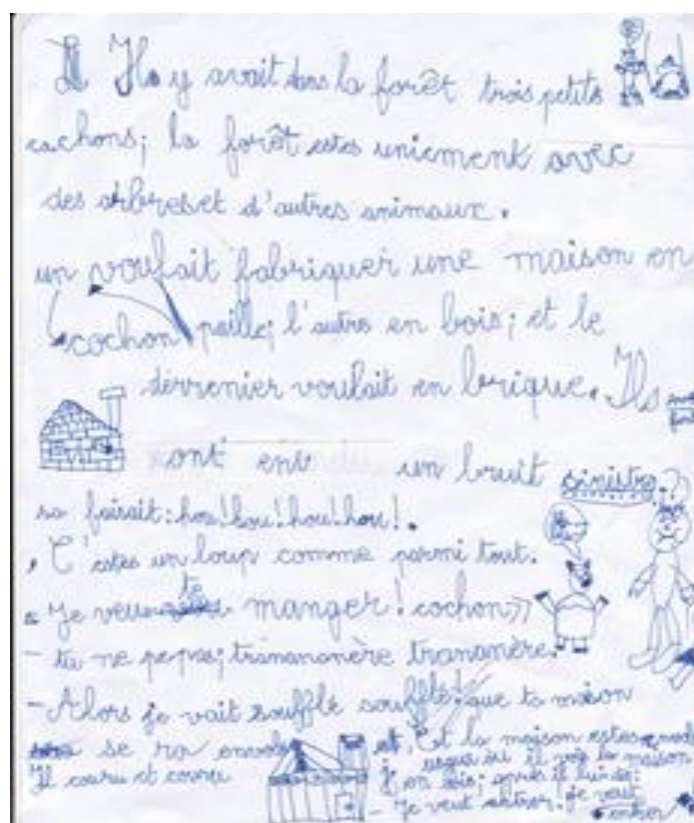 Il y avait dans la forêt trois petits
cachons; la forêt estes uniement avec
des arbres et d'autres animaux.
un voulait fabriquer une maison en
cochon paille; l'autre en bois; et le
dérrenier voulait en brique. Ils
ont ent un bruit sinistre
sa faisait: hou! hou! hou! hou!.
C'estes un loup comme parmi tout.
Je veux te manger! cochon»
- tu ne pe pas; trananère trananère.
- Alors je vait soufflé soufflé! que ta maison
se ra envole et, Et la maison estes
Il couru et couru usqua ou il vois la maison
en bois; après il lui di:
- Je veut entrer! je veut
entrer